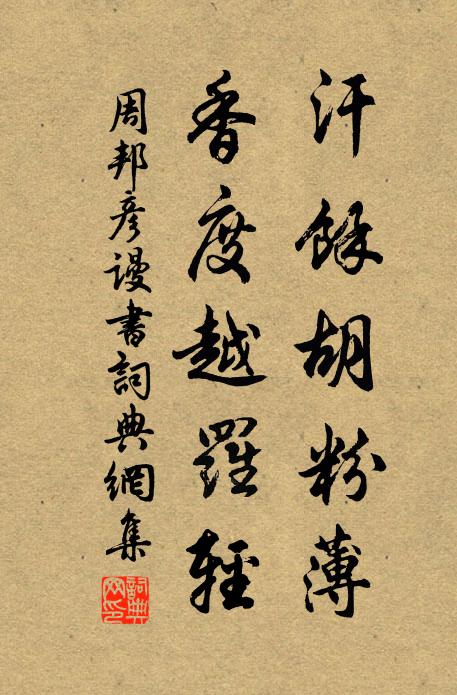 汗餘胡粉薄
香度越羅輕
周邦彥謾書詞典網集
詞典網印